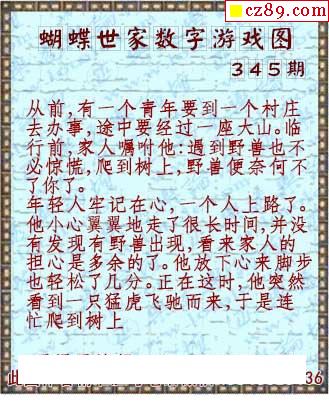 cz89.com
蝴蝶世家数字游戏图
345期
从前,有一个青年要到一个村庄
去办事,途中要经过一座大山。临
行前,家人嘱咐他:遇到野兽也不
必惊慌,爬到树上,野兽便奈何不
了你了。
年轻人牢记在心,一个人上路了。
他小心翼翼地走了很长时间,并没
有发现有野兽出现,看来家人的
担心是多余的了。他放下心来脚步
也轻松了几分。正在这时,他突然
看到一只猛虎飞驰而来,于是连
忙爬到树上
此
36